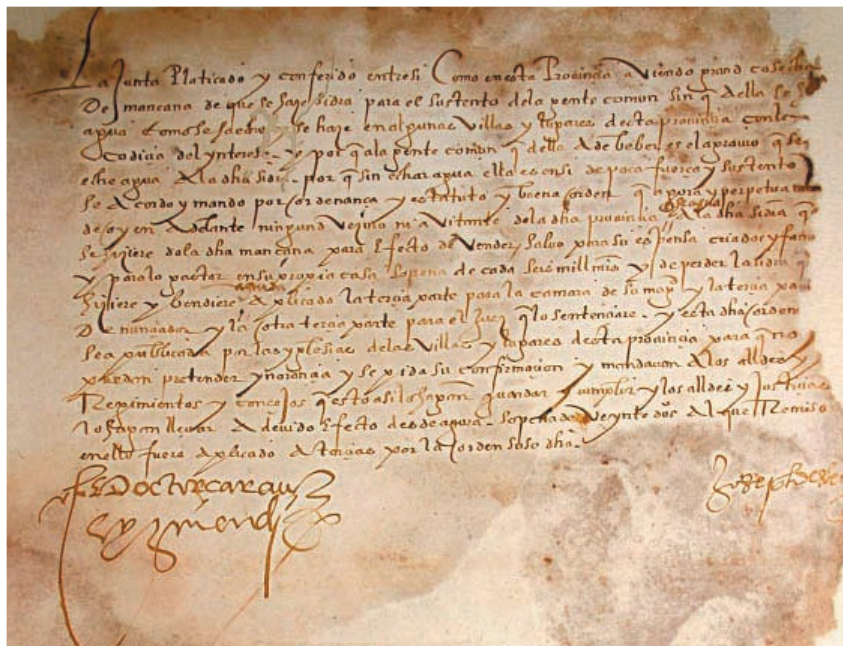 La Junta Platicado y conferido entre si Como en esta Provincia aviendo grand cosecha
De mancana de que se haze sidra para el sustento dela gente comun sin q̃ della se
agua Como se a echo y se haze en algunas Villas y lugares desta provincia con la
Codicia del ynterese y por q̃ a la gente comun q̃ della A de beber es el agravio q̃ se
eche agua A la dha sidra por q̃ sin echar agua ella es en si de poca fuerça y sustento
se Acordo y mando por ordenança y estatuto y buena orden q̃ agora y perpetua
de oy en Adelante ningund vezino ni avitante dela dha provincia eche agua A la dha sidra q̃
se hiziere dela dha mancana para Efecto de Vender salvo para su espensa criados y
y para lo gastar en su propia casa sopena de cada seis mill mrs y de perder la sidra q̃
hiziere y bendiere aguada Aplicado la tercia parte para la camara de su magt y la tercia
Denunciador y la otra tercia parte para el juez q̃ lo sentenciare y esta dha orden
sea publicada por las yglesias delas Villas y lugares desta provincia para q̃ no
puedan pretender ynorancia y se pida su confirmacion y mandaron A los alldes y
Regimientos y concejos q̃ esto asi lo hagan guardar y cumplir y los alldes y Justicias
lo hagan llevar A devido Efecto desde agora sopena de veynte dos Al que Remiso
en ello fuere Aplicado A tercias por la orden suso dha
El Doctor